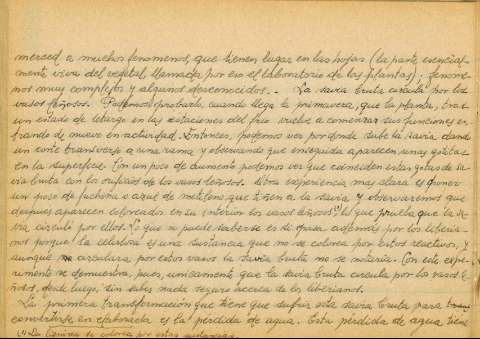 merced a muchos fenomenos, que tienen lugar en las hojas (la parte esencial-
mente viva del vegetal, llamada por eso el laboratorio de las plantas); fenome-
nos muy complejos y algunos desconocidos. - La savia bruta circula por los
vasos leñosos. Podemos probarlo, cuando llega la primavera, que la planta, tras
un estado de letargo en las estaciones del frio vuelve a comenzar sus funciones en-
trando de nuevo en actividad. Entonces, podemos ver por donde sube la savia dando
un corte transverso a una rama y observando que enseguida aparecen unas gotitas
en la superficie. Con un poco de aumento podemos ver que coinciden estas gotas de sa-
via bruta con los orificios de los vasos leñosos. Otra experiencia mas clara es poner
un poco de fuchina o azul de metileno que tiñen a la savia y observaremos que
despues aparecen coloreados en su interior los vasos leñosos (1) lo que prueba que la sa-
via circuló por ellos. Lo que no puede saberse es si pasa además por los liberia-
nos porque la celulosa es una sustancia que no se colorea por estos reactivos, y
aunque circulara por estos vasos la savia bruta no se notaría. Con este expe-
rimento se demuestra, pues, unicamente que la savia bruta circula por los vasos le-
ñosos, desde luego, sin saber nada seguro acerca de los liberianos.
La primera transformación que tiene que sufrir esta savia bruta para
convertirse en elaborada es la pérdida de agua. Esta pérdida de agua tiene
(1) La lignina se colorea por estas sustancias.